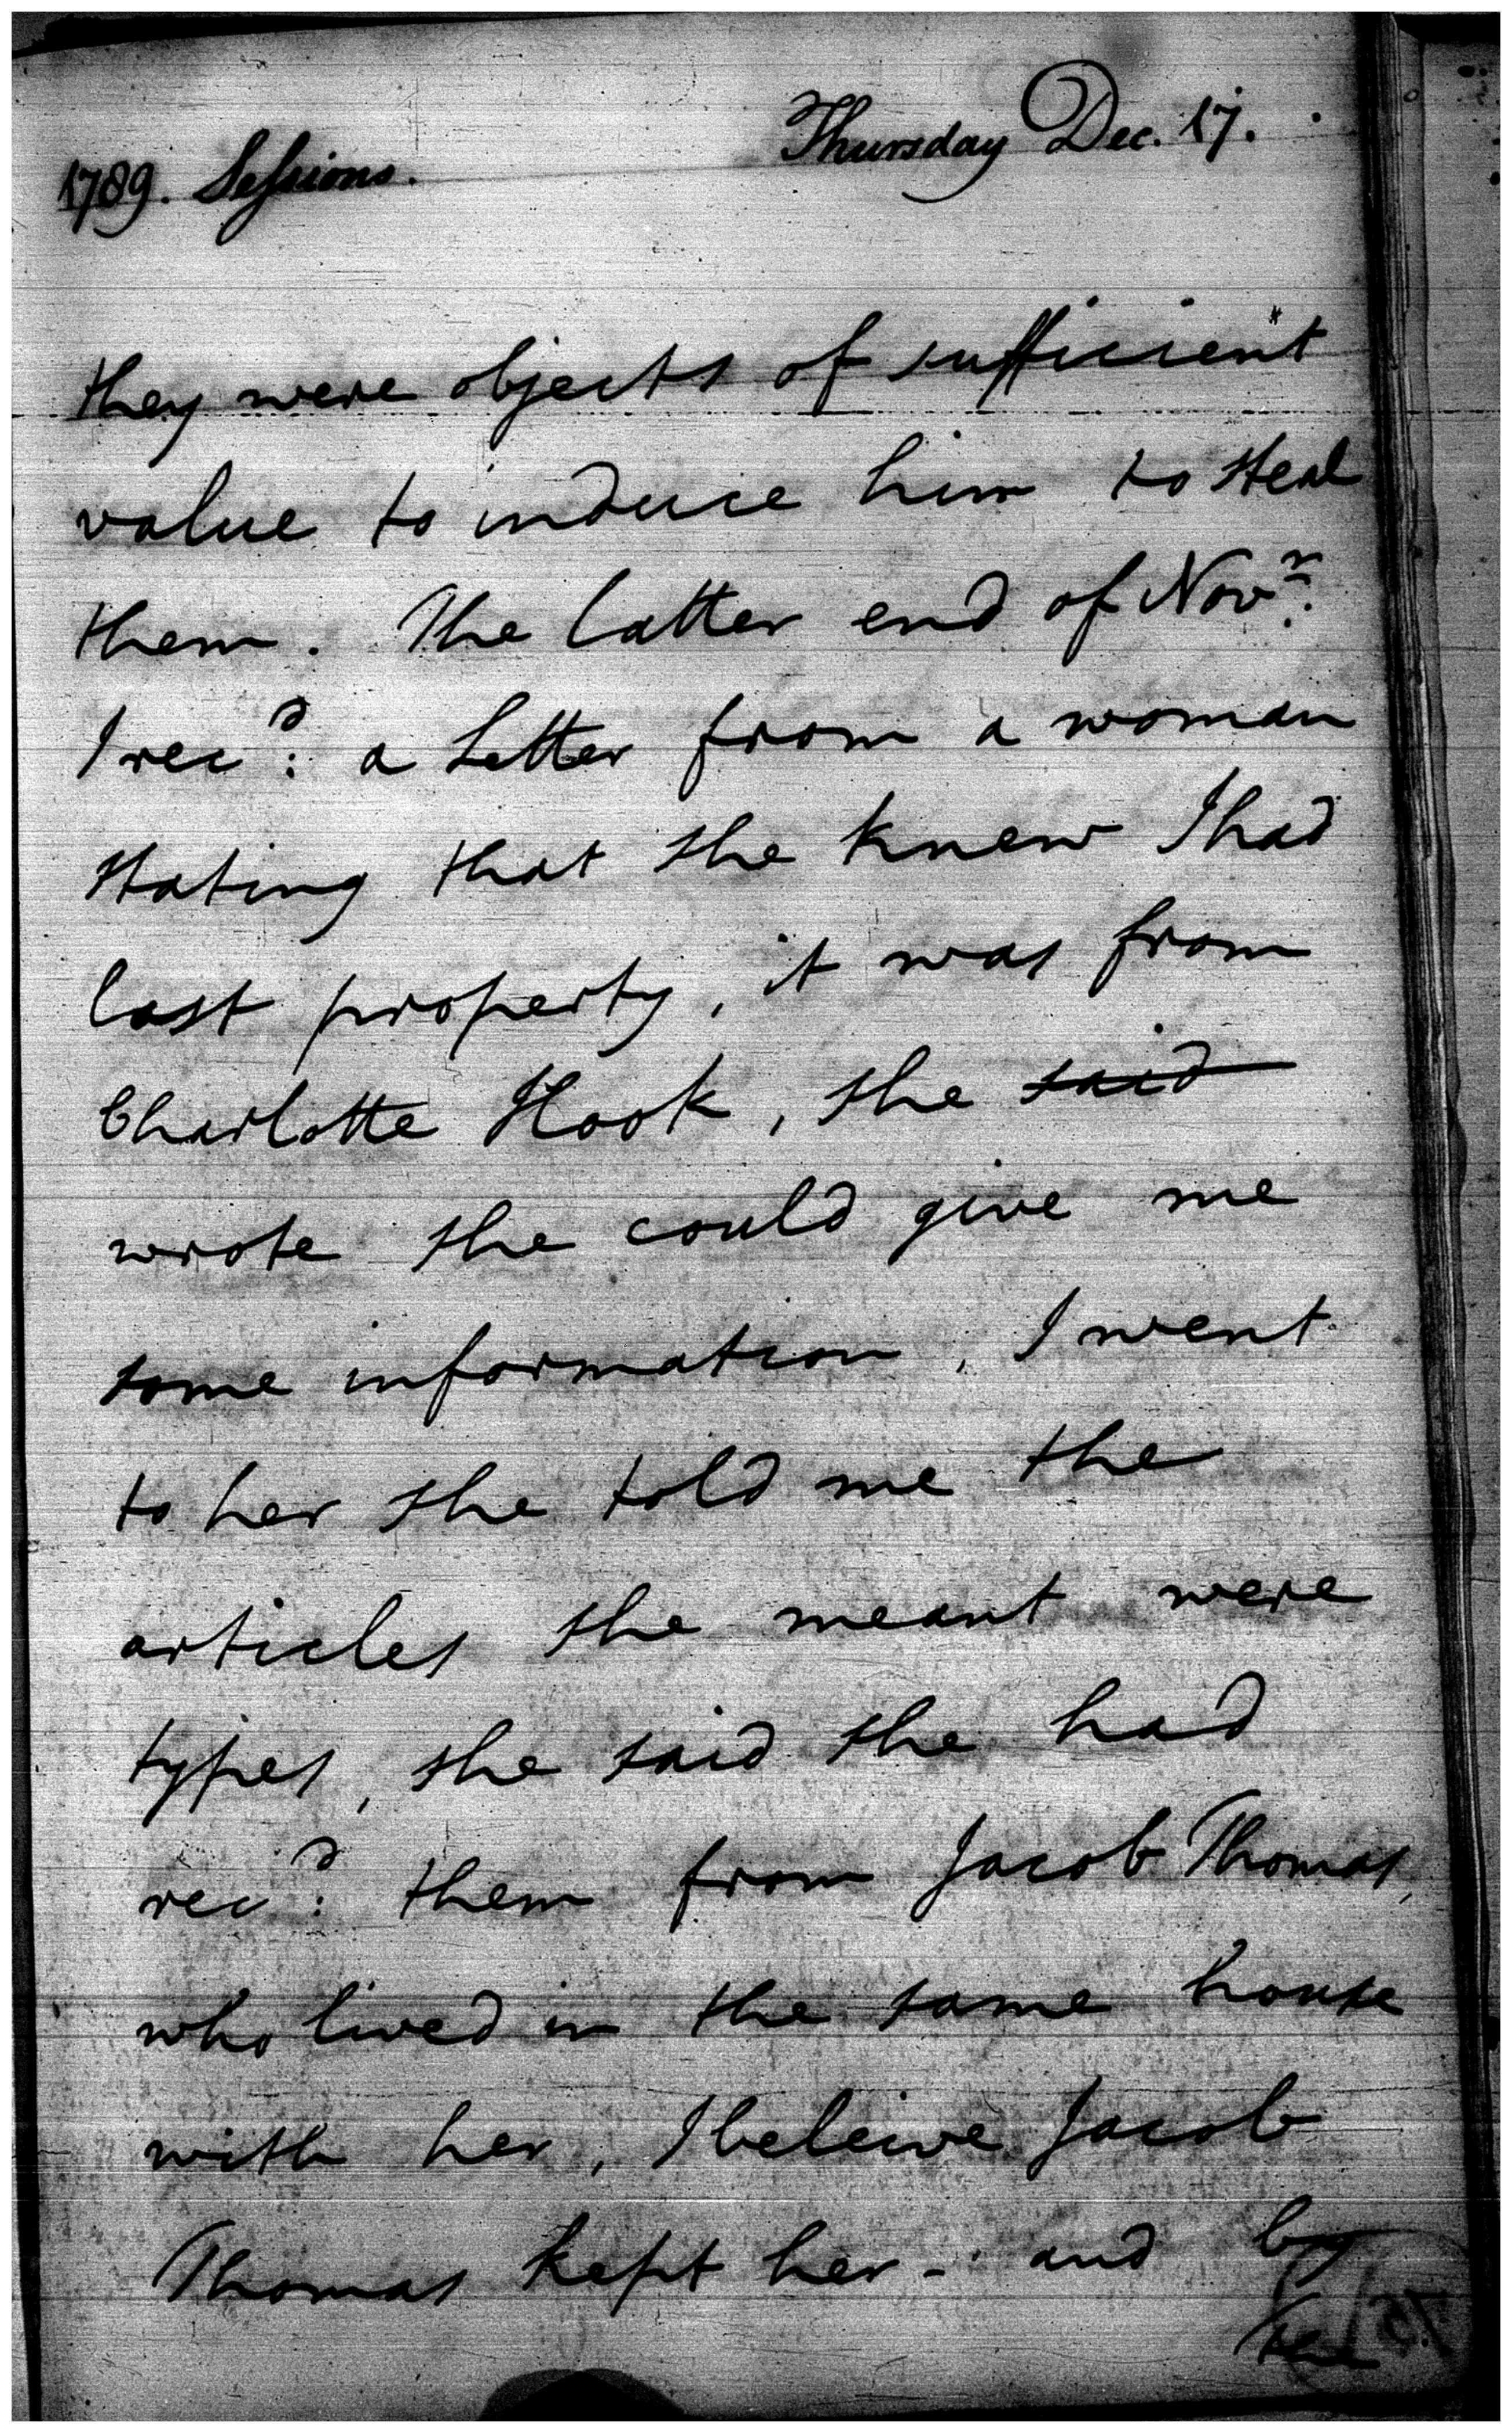 1789. Sessions. Thursday Dec. 17.
they were objects of sufficient
value to induce him to steal
them. The latter end of Novr.
I recd. a Letter from a woman
stating that she knew I had
lost property, it was from
Charlotte Hook, she said
wrote she could give me
some information, I went
to her she told me the
articles she meant were
types, she said she had
recd. them from Jacob Thomas,
who lived in the same house
with her, I beleive Jacob
Thomas kept her - and by
the